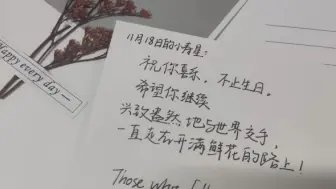 Happy every day
11月18日的小寿星：
祝你喜乐，不止生日。
希望你继续
兴致盎然地与世界交手，
一直走在开满鲜花的路上！
Those who